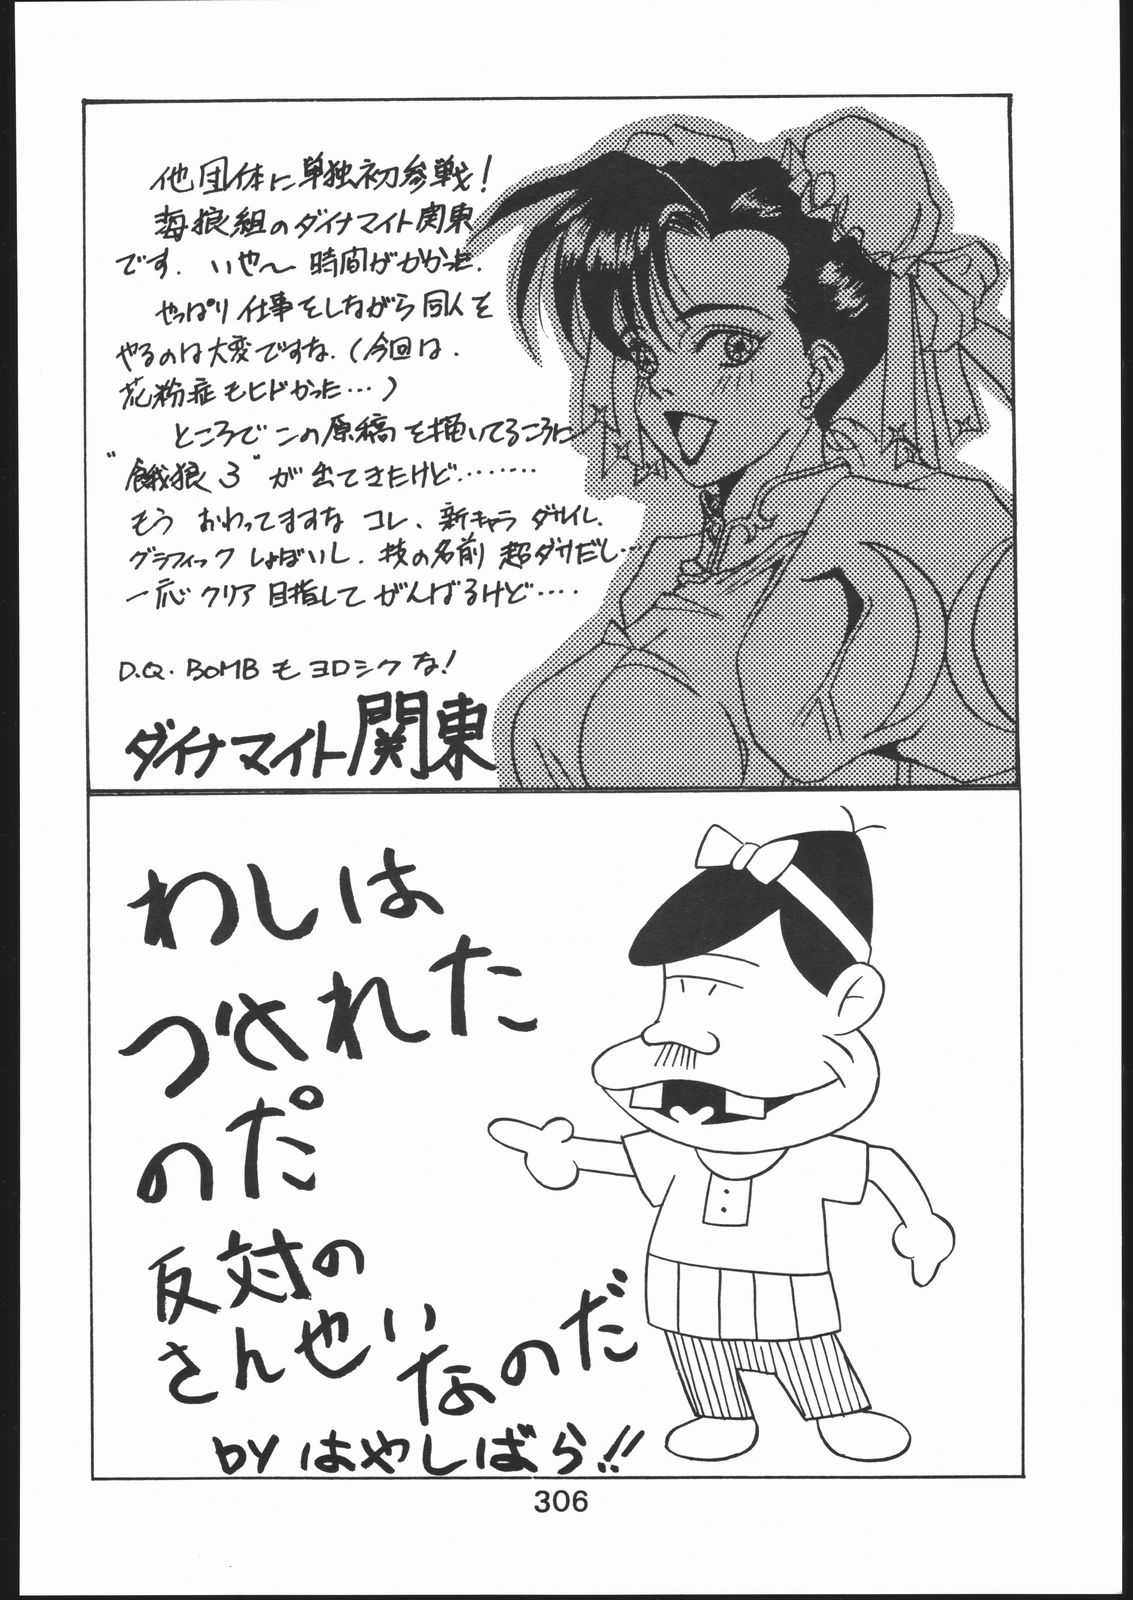 他団体に単独初参戦!
海狼組のダイナマイト関東
です. いや〜 時間がかかった.
やっぱり仕事をしながら同人を
やるのは大変ですな.(今回は.
花粉症もヒドかった…)
ところでこの原稿を描いてるころに
"餓狼3"が出てきたけど………
もう おわってますな コレ、新キャラ ダサイし、
グラフィック しょぼいし. 技の名前 超ダサだし…
一応 クリア 目指して がんばるけど‥‥
D.Q. BOMB も ヨロシク な!
ダイナマイト関東
わしは
つされた
のだ
反対の
さん也い
なのだ
by はやしばら!!
306